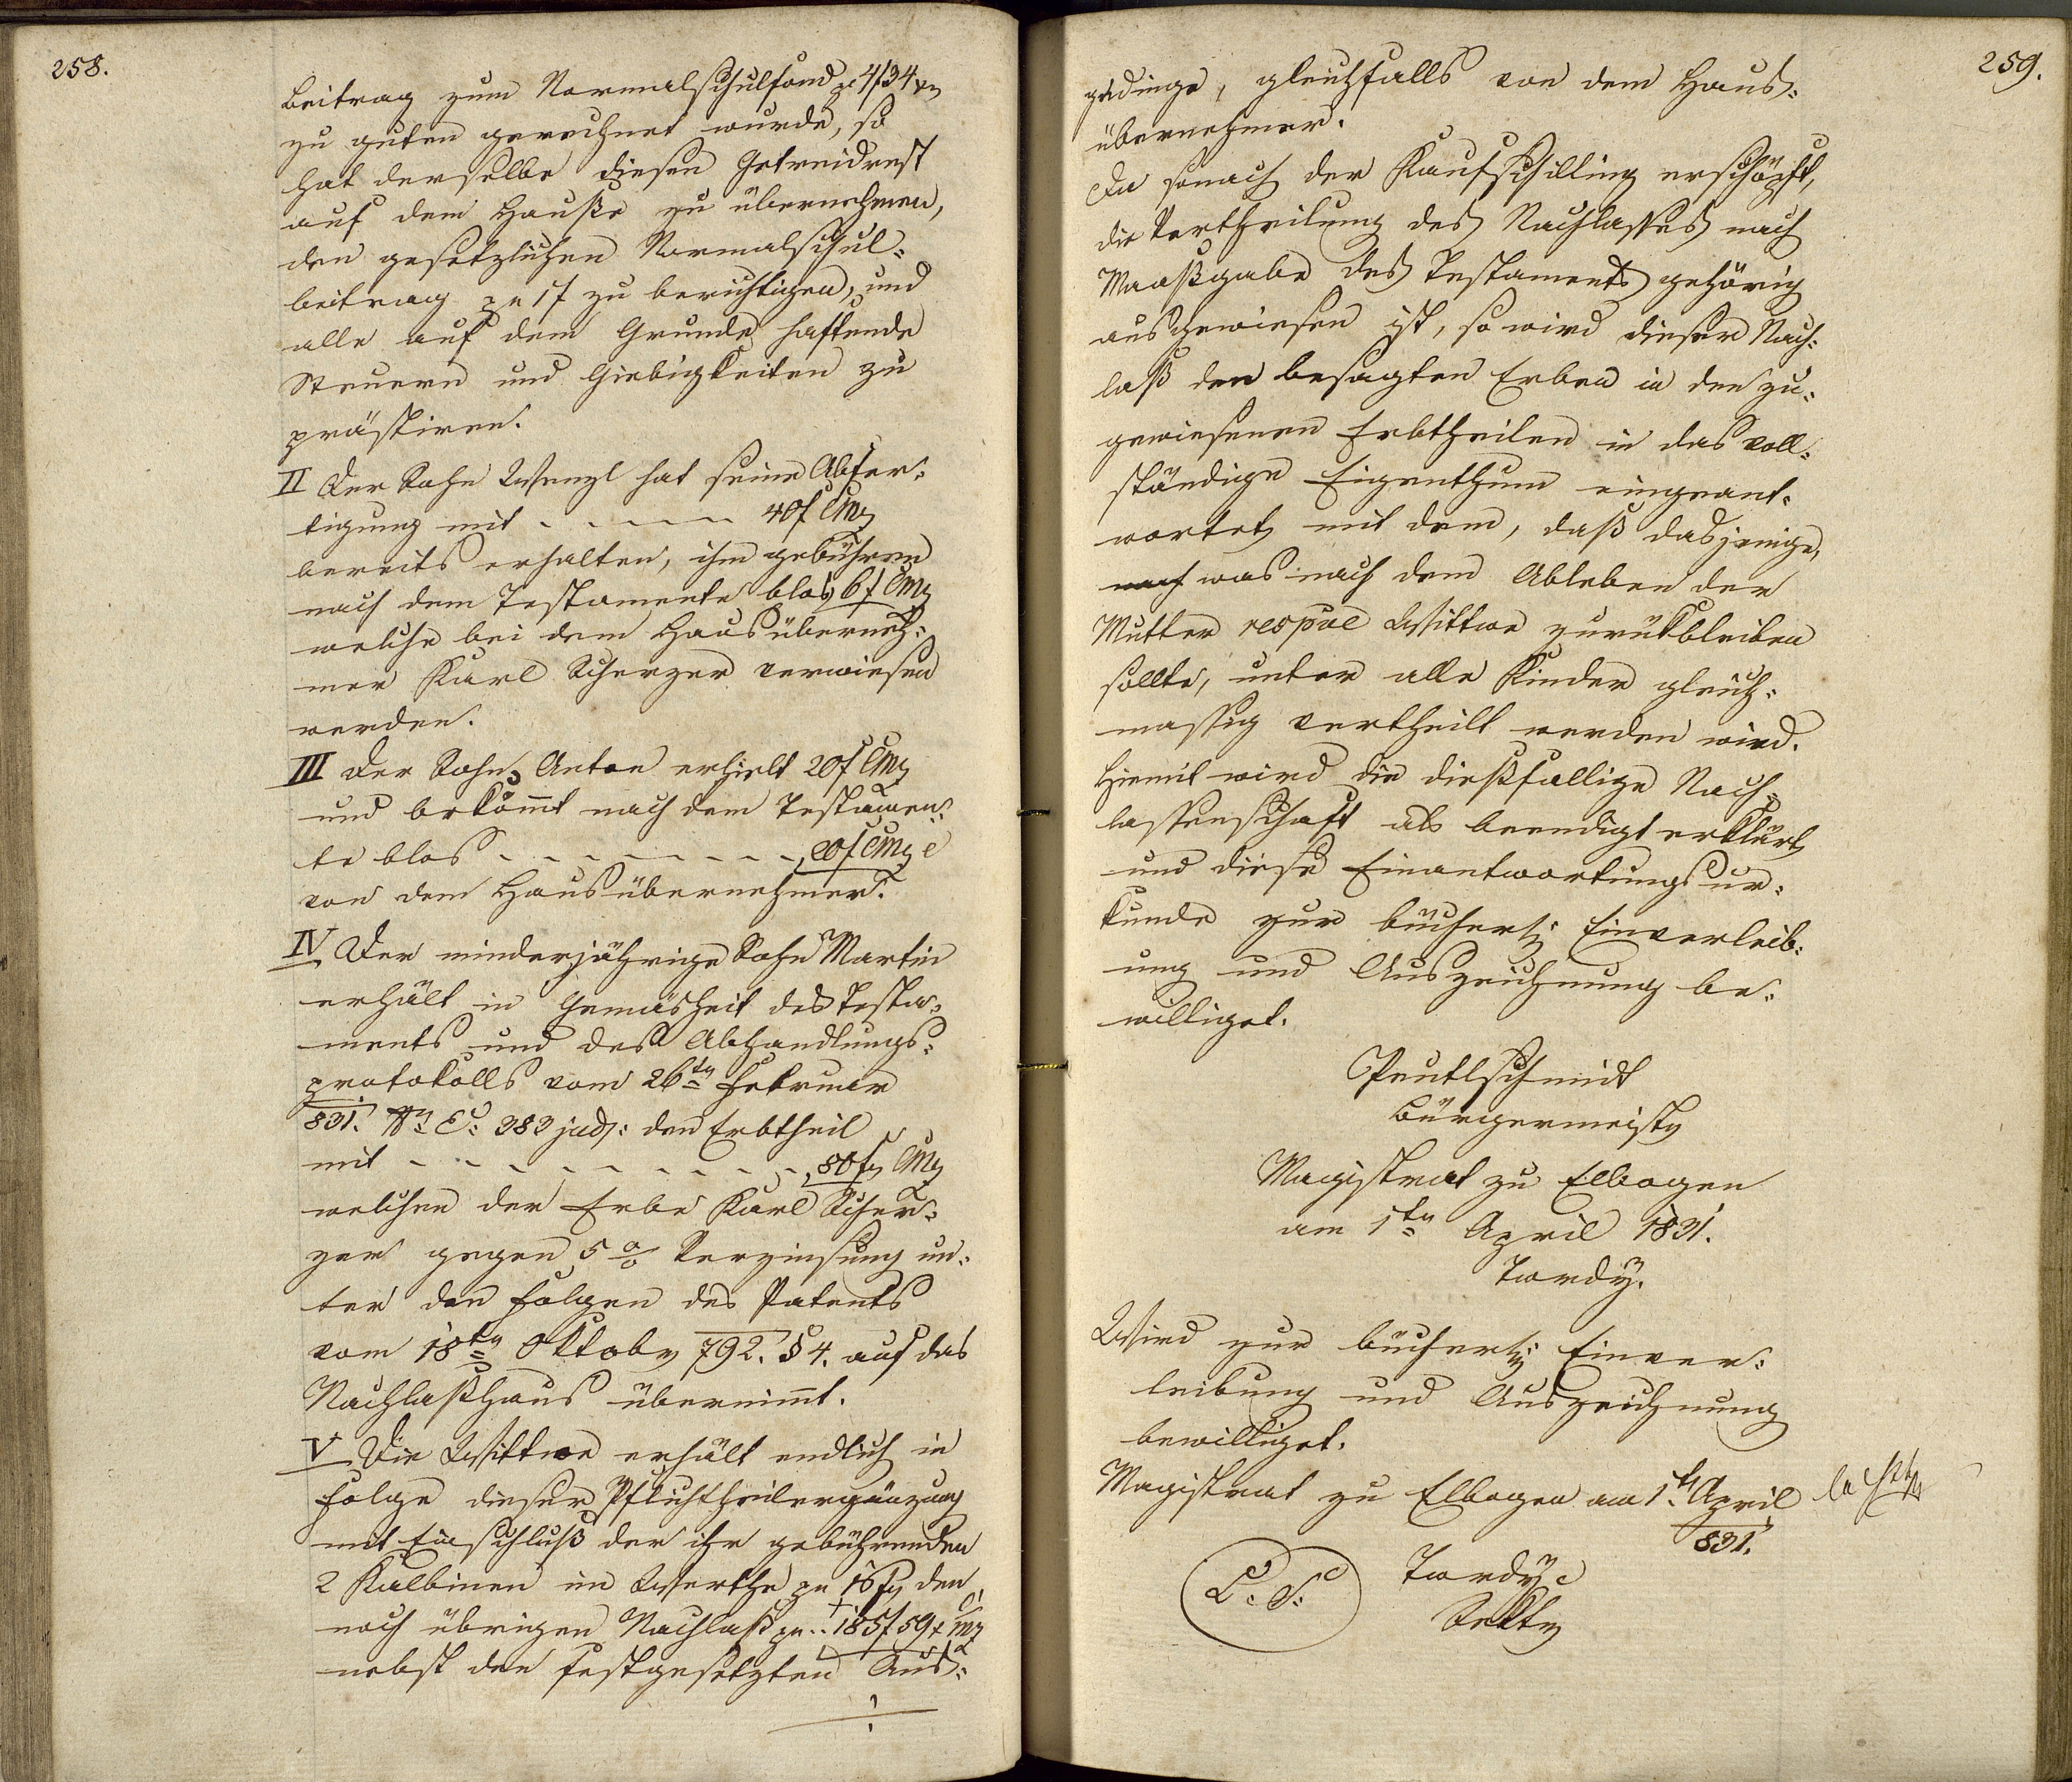 258.
Beitrag zum Normalschulfond pr 4f 34 xr
zu guten gerechnet wurde, so
hat derselbe diesen Getreidrest
auf dem Hauße zu übernehmen,
den gesetzlichen Normalschul=
beitrag pr 1f zu berichtigen, und
alle auf dem Grunde haftende
Steuern und Giebigkeiten zu
prästiren.
II Der Sohn Wenzl hat seine Abfer=
tigung mit - - - - - 40f CMz
bereits erhalten, ihm gebühren
nach dem Testamente blos 6f CMz
welche bei dem Hausüberneh=
mer Karl Scherzer verwiesen
werden.
III Der Sohn Anton erhielt 20f CMz
und bekömmt nach dem Testamen=
te blos - - - - - - - - 20f CMze
von dem Hausübernehmer.
IV Der minderjährige Sohn Martin
erhält in Gemäsheit des Testa=
ments und des Abhandlungs=
protokolls vom 26ten Februar
831. No E: 383 jud: den Erbtheil
mit - - - - - - - - - 80f CMz
welchen der Erbe Karl Scher=
zer gegen 5 % Verzinsung un=
ter den Folgen des Patents
vom 18ten Oktober 792. § 4. auf das
Nachlaßhaus übernimmt.
V Die Wittwe erhält endlich in
Folge dieser Pflichttheilergänzung
mit Einschluß der ihr gebührenden
2 Kalbinen im Werthe pr 16f den
noch übrigen Nachlaß pr .. 185f 59x CMz
nebst den festgesetzten Aus=
259.
gedinge, gleichfalls von dem Haus=
übernehmer.
Da sonach der Kaufschilling erschöpft,
die Vertheilung des Nachlasses nach
Maaßgabe des Testaments gehörig
ausgewiesen ist, so wird dieser Nach=
laß den besagten Erben in den zu=
gewiesenen Erbtheilen in das voll=
ständige Eigenthum eingeant=
wortet mit dem, daß dasjenige,
was nach dem Ableben der
Mutter respve Wittwe zurükbleiben
sollte, unter alle Kinder gleich=
massig vertheilt werden wird.
Hiemit wird die dießfallige Nach=
lassenschaft als beendigt erklärt
und diese Einantwortungsur=
kunde zur bücherl: Einverleib=
ung und Auszeichnung be=
williget.
Peutlschmidt
Bürgermeister
Magistrat zu Elbogen
am 1ten April 1831.
Tordy.
Wird zur bücherl: Einver=
leibung und Auszeichnung
bewilliget.
Magistrat zu Elbogen am 1ten April
831.
L. S.
Tordy